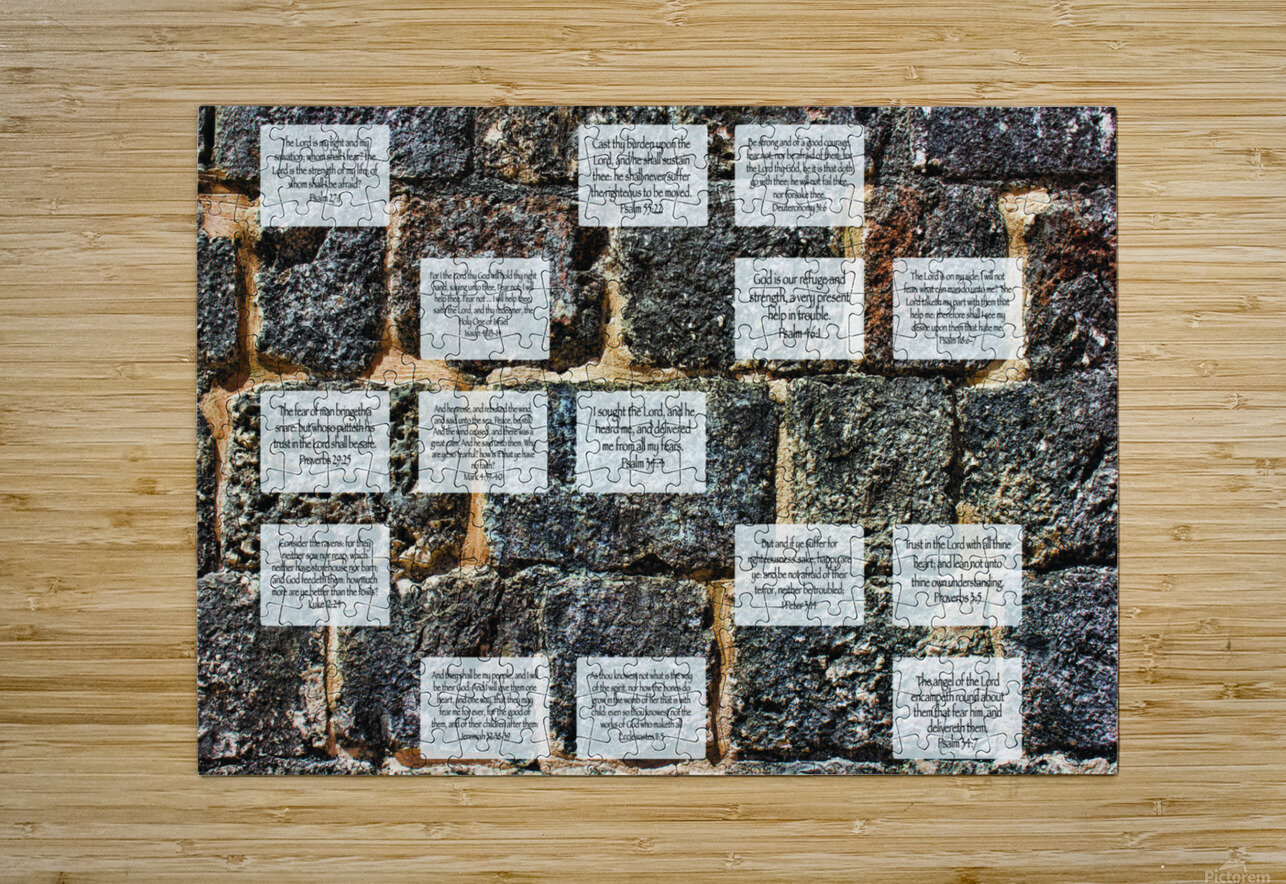 The Lord is my light and my
salvation; whom shall I fear? the
Lord is the strength of my life; of
whom shall I be afraid?
Psalm 27:1
Cast thy burden upon the
Lord, and he shall sustain
thee: he shall never suffer
the righteous to be moved.
Psalm 55:22
Be strong and of a good courage,
fear not, nor be afraid of them: for
the Lord thy God, he it is that doth
go with thee; he will not fail thee,
nor forsake thee.
Deuteronomy 31:6
For I the Lord thy God will hold thy right
hand, saying unto thee, Fear not; I will
help thee. Fear not ... I will help thee,
saith the Lord, and thy redeemer, the
Holy One of Israel
Isaiah 41:13-14
God is our refuge and
strength, a very present
help in trouble.
Psalm 46:1
The Lord is on my side; I will not
fear: what can man do unto me? The
Lord taketh my part with them that
help me: therefore shall I see my
desire upon them that hate me.
Psalm 118:6-7
The fear of man bringeth a
snare: but whoso putteth his
trust in the Lord shall be safe.
Proverbs 29:25
And he arose, and rebuked the wind,
and said unto the sea, Peace, be still.
And the wind ceased, and there was a
great calm. And he said unto them, Why
are ye so fearful? how is it that ye have
no faith?
Mark 4:39-40
I sought the Lord, and he
heard me, and delivered
me from all my fears.
Psalm 34:4
Consider the ravens: for they
neither sow nor reap; which
neither have storehouse nor barn;
and God feedeth them: how much
more are ye better than the fowls?
Luke 12:24
But and if ye suffer for
righteousness' sake, happy are
ye: and be not afraid of their
terror, neither be troubled;
1 Peter 3:14
Trust in the Lord with all thine
heart; and lean not unto
thine own understanding.
Proverbs 3:5
And they shall be my people, and I will
be their God: And I will give them one
heart, and one way, that they may
fear me for ever, for the good of
them, and of their children after them:
Jeremiah 32:38-39
As thou knowest not what is the way
of the spirit, nor how the bones do
grow in the womb of her that is with
child: even so thou knowest not the
works of God who maketh all.
Ecclesiastes 11:5
The angel of the Lord
encampeth round about
them that fear him, and
delivereth them.
Psalm 34:7
Pictorem